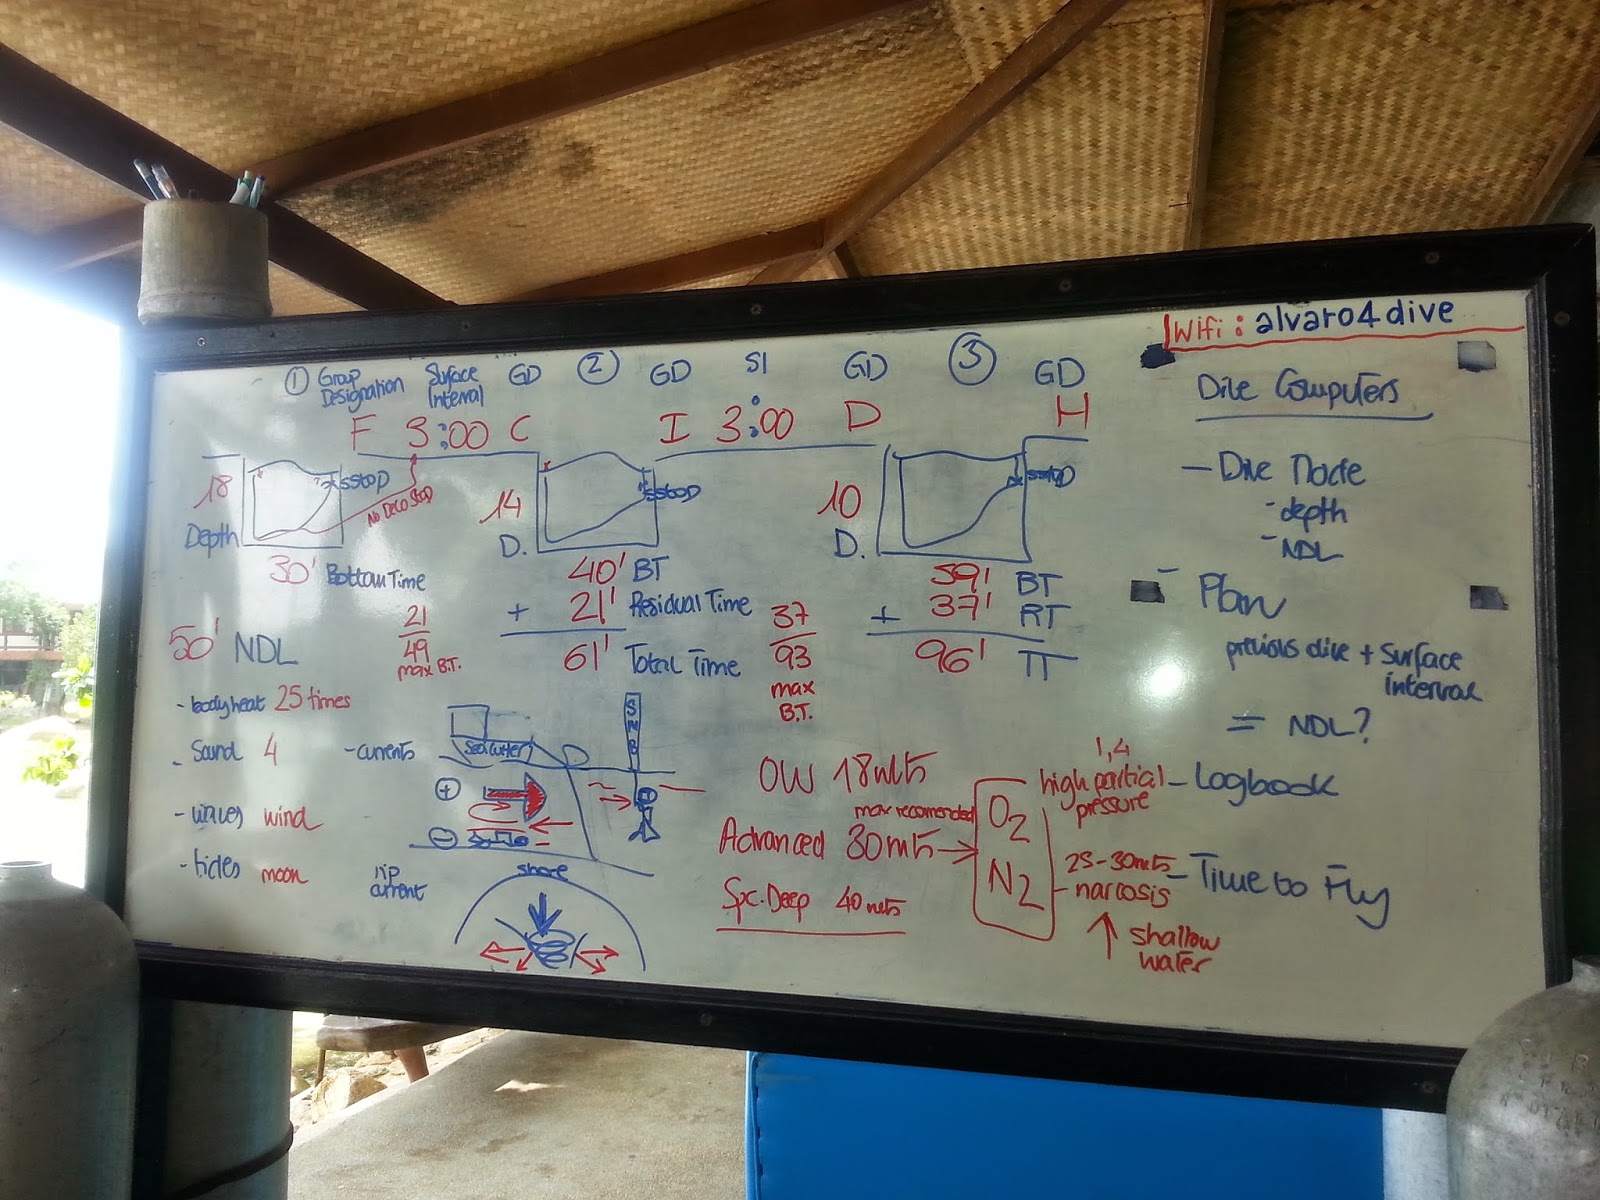 Wifi: alvaro4dive
① Group Designation Surface Interval GD ② GD SI GD ③ GD
F 3:00 C I 3:00 D H
18 sstop No Deco Stop 14 sstop 10
Depth D. D.
30' Bottom Time 40' BT 59' BT
21 + 21' Residual Time 37 + 37' RT
50' NDL 49 61' Total Time 93 96' TT
max B.T. max B.T.
- body heat 25 times
- Sound 4
- waves wind
- tides moon
- currents
Seacutter
SMB
+
-
rip current
shore
OW 18mts
max recomended
Advanced 30mts
Spc. Deep 40mts
O2
N2
1,4
high partial pressure
25-30mts
narcosis
shallow water
Dive Computers
- Dive Mode
- depth
- NDL
- Plan
previous dive + Surface interval
= NDL?
- Logbook
- Time to Fly